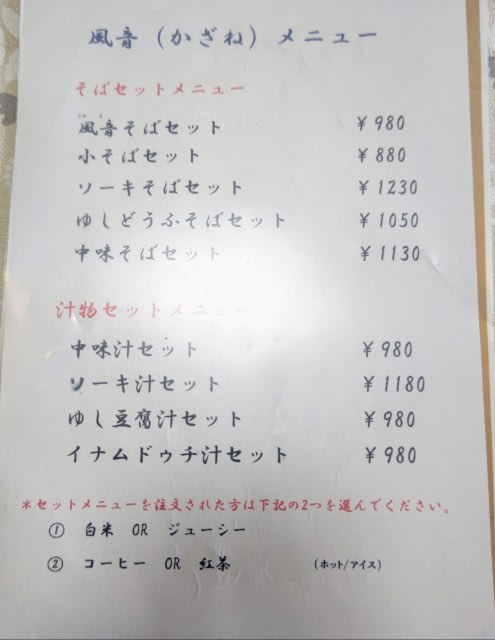 風音（かざね）メニュー
そばセットメニュー
風音そばセット ￥980
小そばセット ￥880
ソーキそばセット ￥1230
ゆしどうふそばセット ￥1050
中味そばセット ￥1130
汁物セットメニュー
中味汁セット ￥980
ソーキ汁セット ￥1180
ゆし豆腐汁セット ￥980
イナムドゥチ汁セット ￥980
＊セットメニューを注文された方は下記の2つを選んでください。
① 白米 OR ジューシー
② コーヒー OR 紅茶 （ホット/アイス）